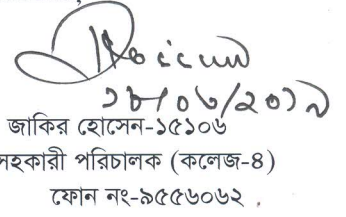 ১৮/০৬/২০১৯
জাকির হোসেন-১৫১০৬
সহকারী পরিচালক (কলেজ-৪)
ফোন নং-৯৫৫৬০৬২ .